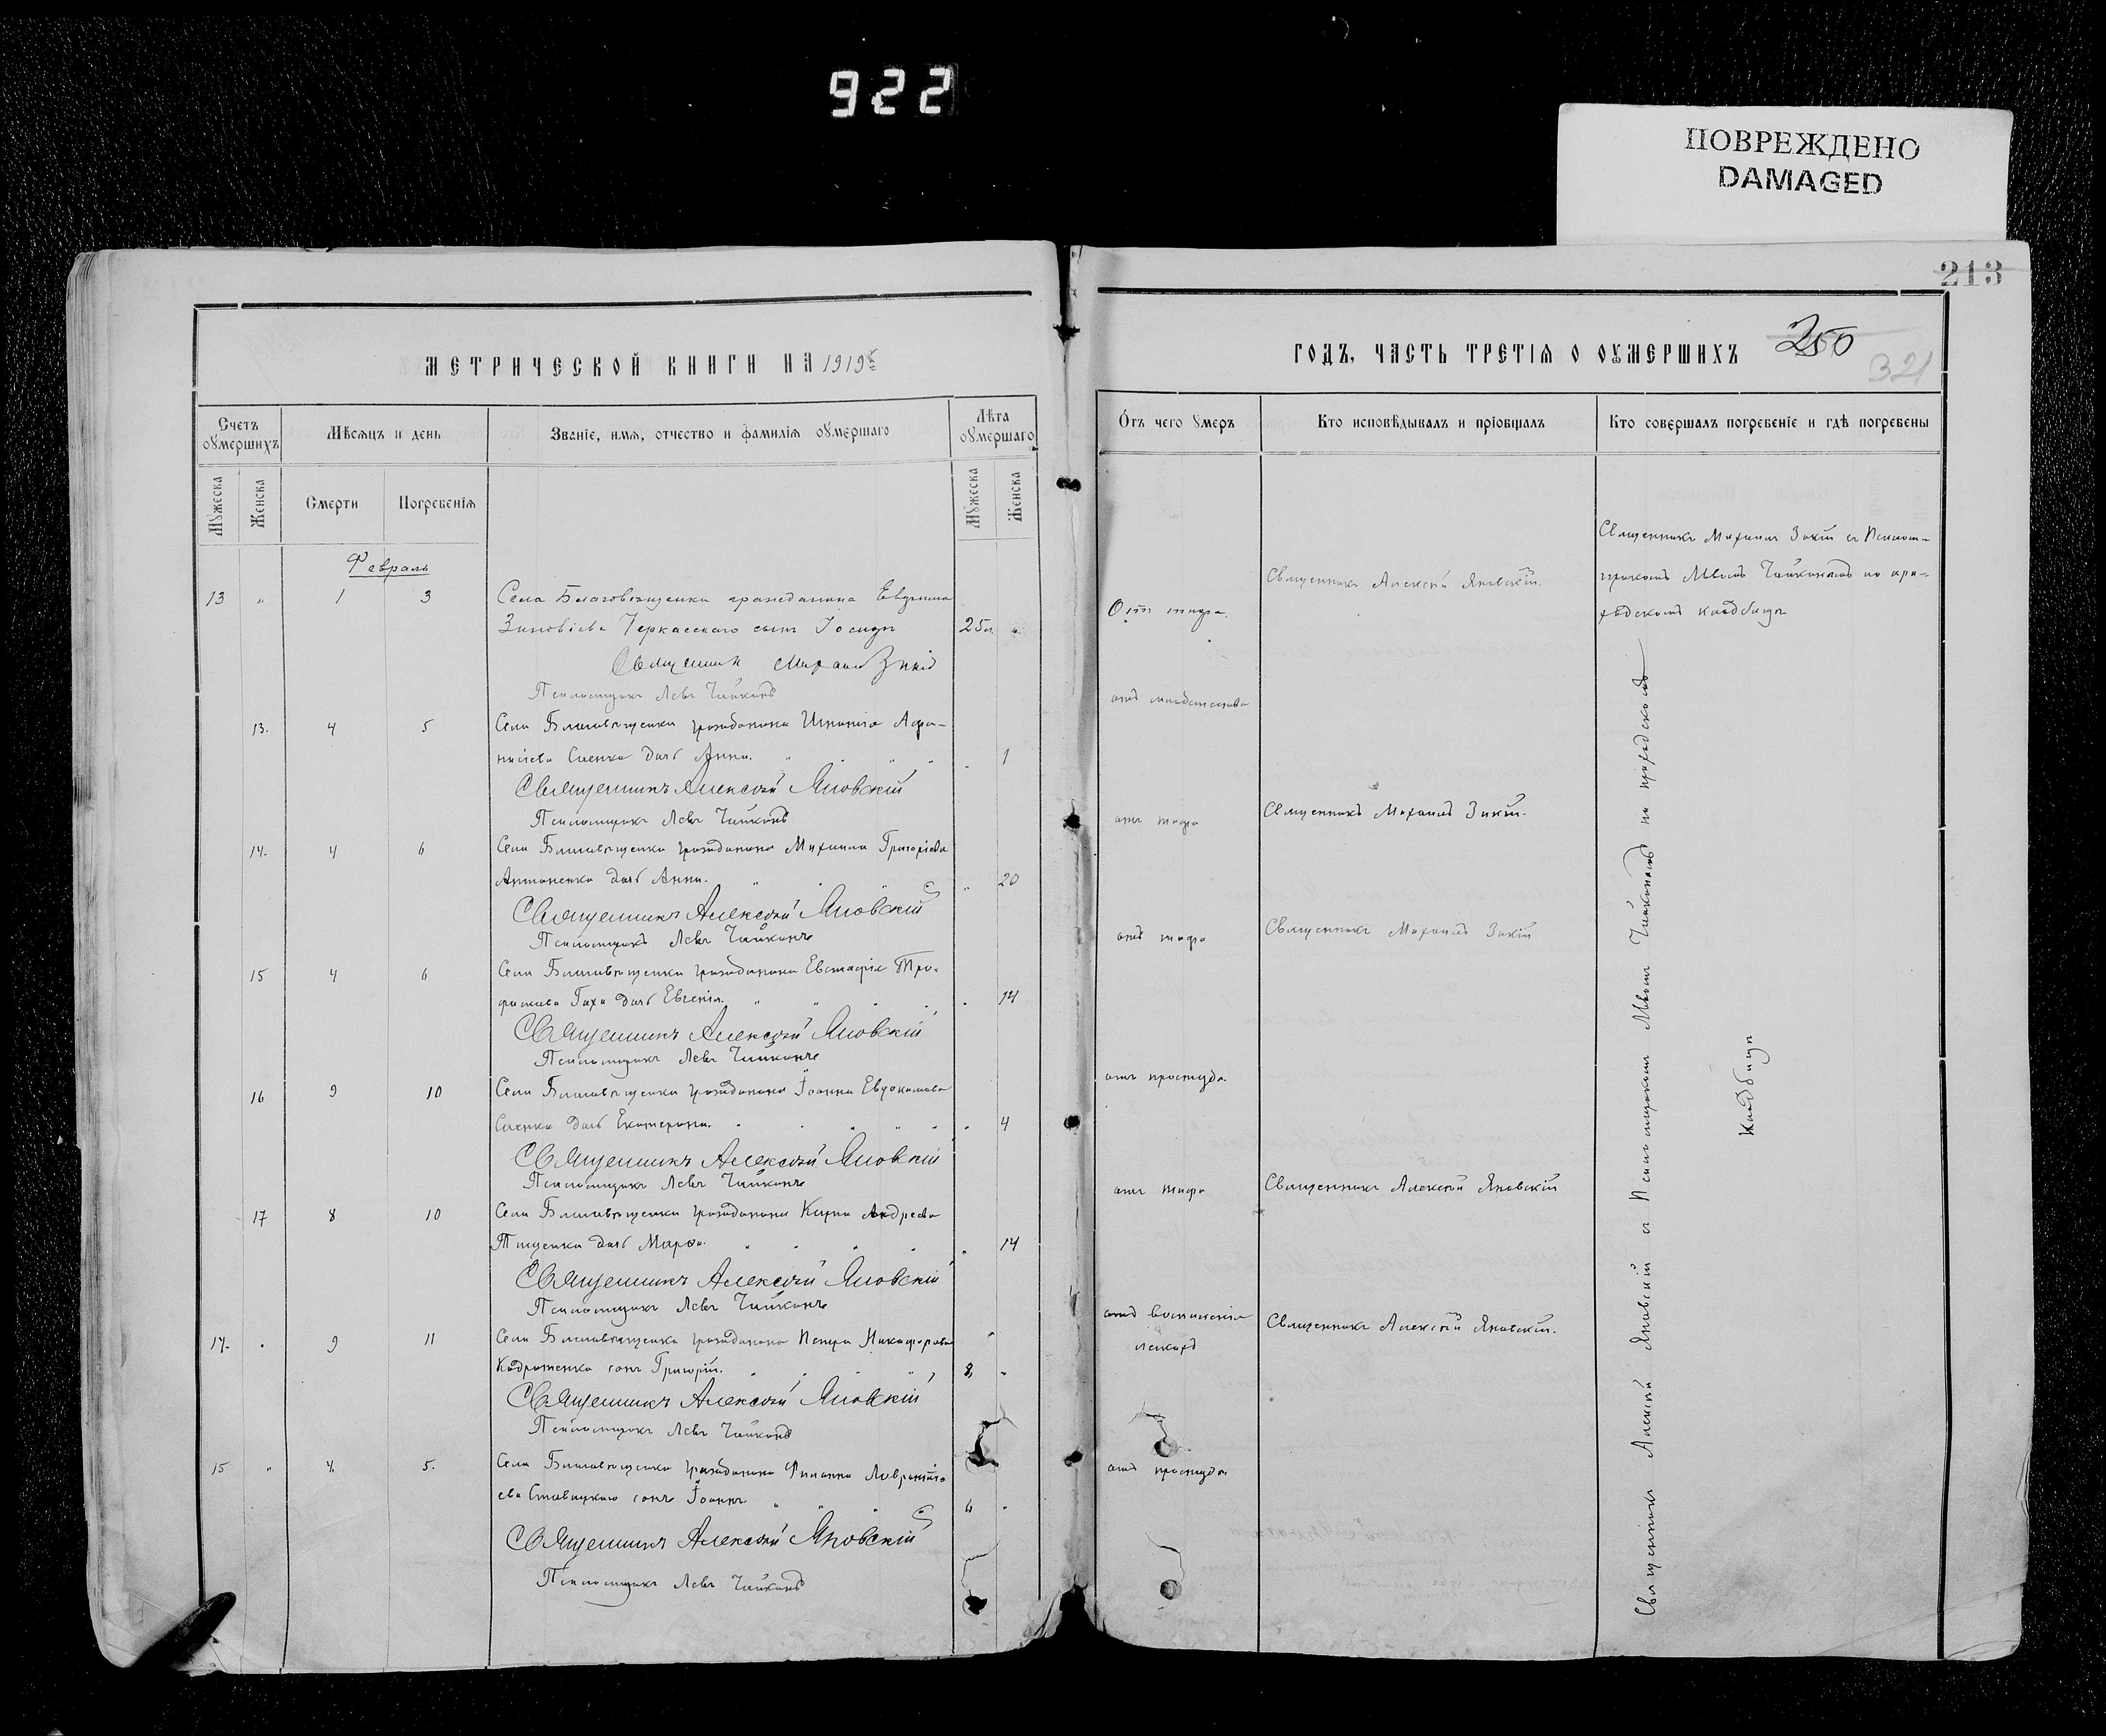 922
ПОВРЕЖДЕНО
DAMAGED
213
МЕТРИЧЕСКОЙ КНИГИ НА 1919
ГОДЪ, ЧАСТЬ ТРЕТІѦ О ОУМЕРШИХЪ
250
321
Счетъ оумершихъ
Мѣсѧцъ и день
Званіе, имѧ, отчество и фамиліѧ оумершаго
Лѣта оумершаго
Мужеска
Женска
Смерти
Погребеніѧ
Мужеска
Женска
Отъ чего умеръ
Кто исповѣдывалъ и пріобщалъ
Кто совершалъ погребеніе и гдѣ погребены
Февраль
13 " 1 3 Села Благовѣщенки гражданина
Зиновіева Черкасскаго сынъ Іосифъ 25 л. "
Священник Михаил Зикій
Псаломщикъ Левъ Чайкинъ
13. 4 5 Села Благовѣщенки гражданина Игнатія Афа-
насіева Саенка дочь Анна. 1
Священникъ Алексѣй Яновскій
Псаломщикъ Левъ Чайкинъ
14. 4 6 Села Благовѣщенки гражданина Михаила Григоріева
Антоненка дочь Анна. " 20
Священникъ Алексѣй Яновскій
Псаломщикъ Левъ Чайкинъ
15 4 6 Села Благовѣщенки гражданина Евстафія Тро-
фимова Гаха дочь Евгенія. 14
Священникъ Алексѣй Яновскій
Псаломщикъ Левъ Чайкинъ
16 9 10 Села Благовѣщенки гражданина Іоанна Евдокимова
Саенка дочь Екатерина. 4
Священникъ Алексѣй Яновскій
Псаломщикъ Левъ Чайкинъ
17 8 10 Села Благовѣщенки гражданина Карпа Андреева
Тищенка дочь Марѳа. 14
Священникъ Алексѣй Яновскій
Псаломщикъ Левъ Чайкинъ
14. " 9 11 Села Благовѣщенки гражданина Петра Никифорова
сынъ Григорій. 8 "
Священникъ Алексѣй Яновскій
Псаломщикъ Левъ Чайкинъ
15 " 4. 5. Села Благовѣщенки гражданина Филиппа
Ставицкаго сынъ Іоаннъ. 6 "
Священникъ Алексѣй Яновскій
Псаломщикъ Левъ Чайкинъ
Отъ тифа.
Священникъ Алексѣй Яновскій.
Священникъ Михаилъ Зикій съ Псалом-
щикомъ Львомъ Чайкинымъ на при-
ходскомъ кладбищѣ
отъ младенчества
отъ тифа
Священникъ Михаилъ Зикій.
отъ тифа
Священникъ Михаилъ Зикій
отъ простуды.
отъ тифа
Священникъ Алексѣй Яновскій
отъ воспаленія
легкихъ
Священникъ Алексѣй Яновскій.
отъ простуды
Священникъ Алексѣй Яновскій съ Псаломщикомъ Львомъ Чайкинымъ на приходскомъ
кладбищѣ